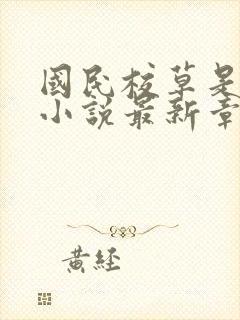 國民校草是
小說最新章
黃經